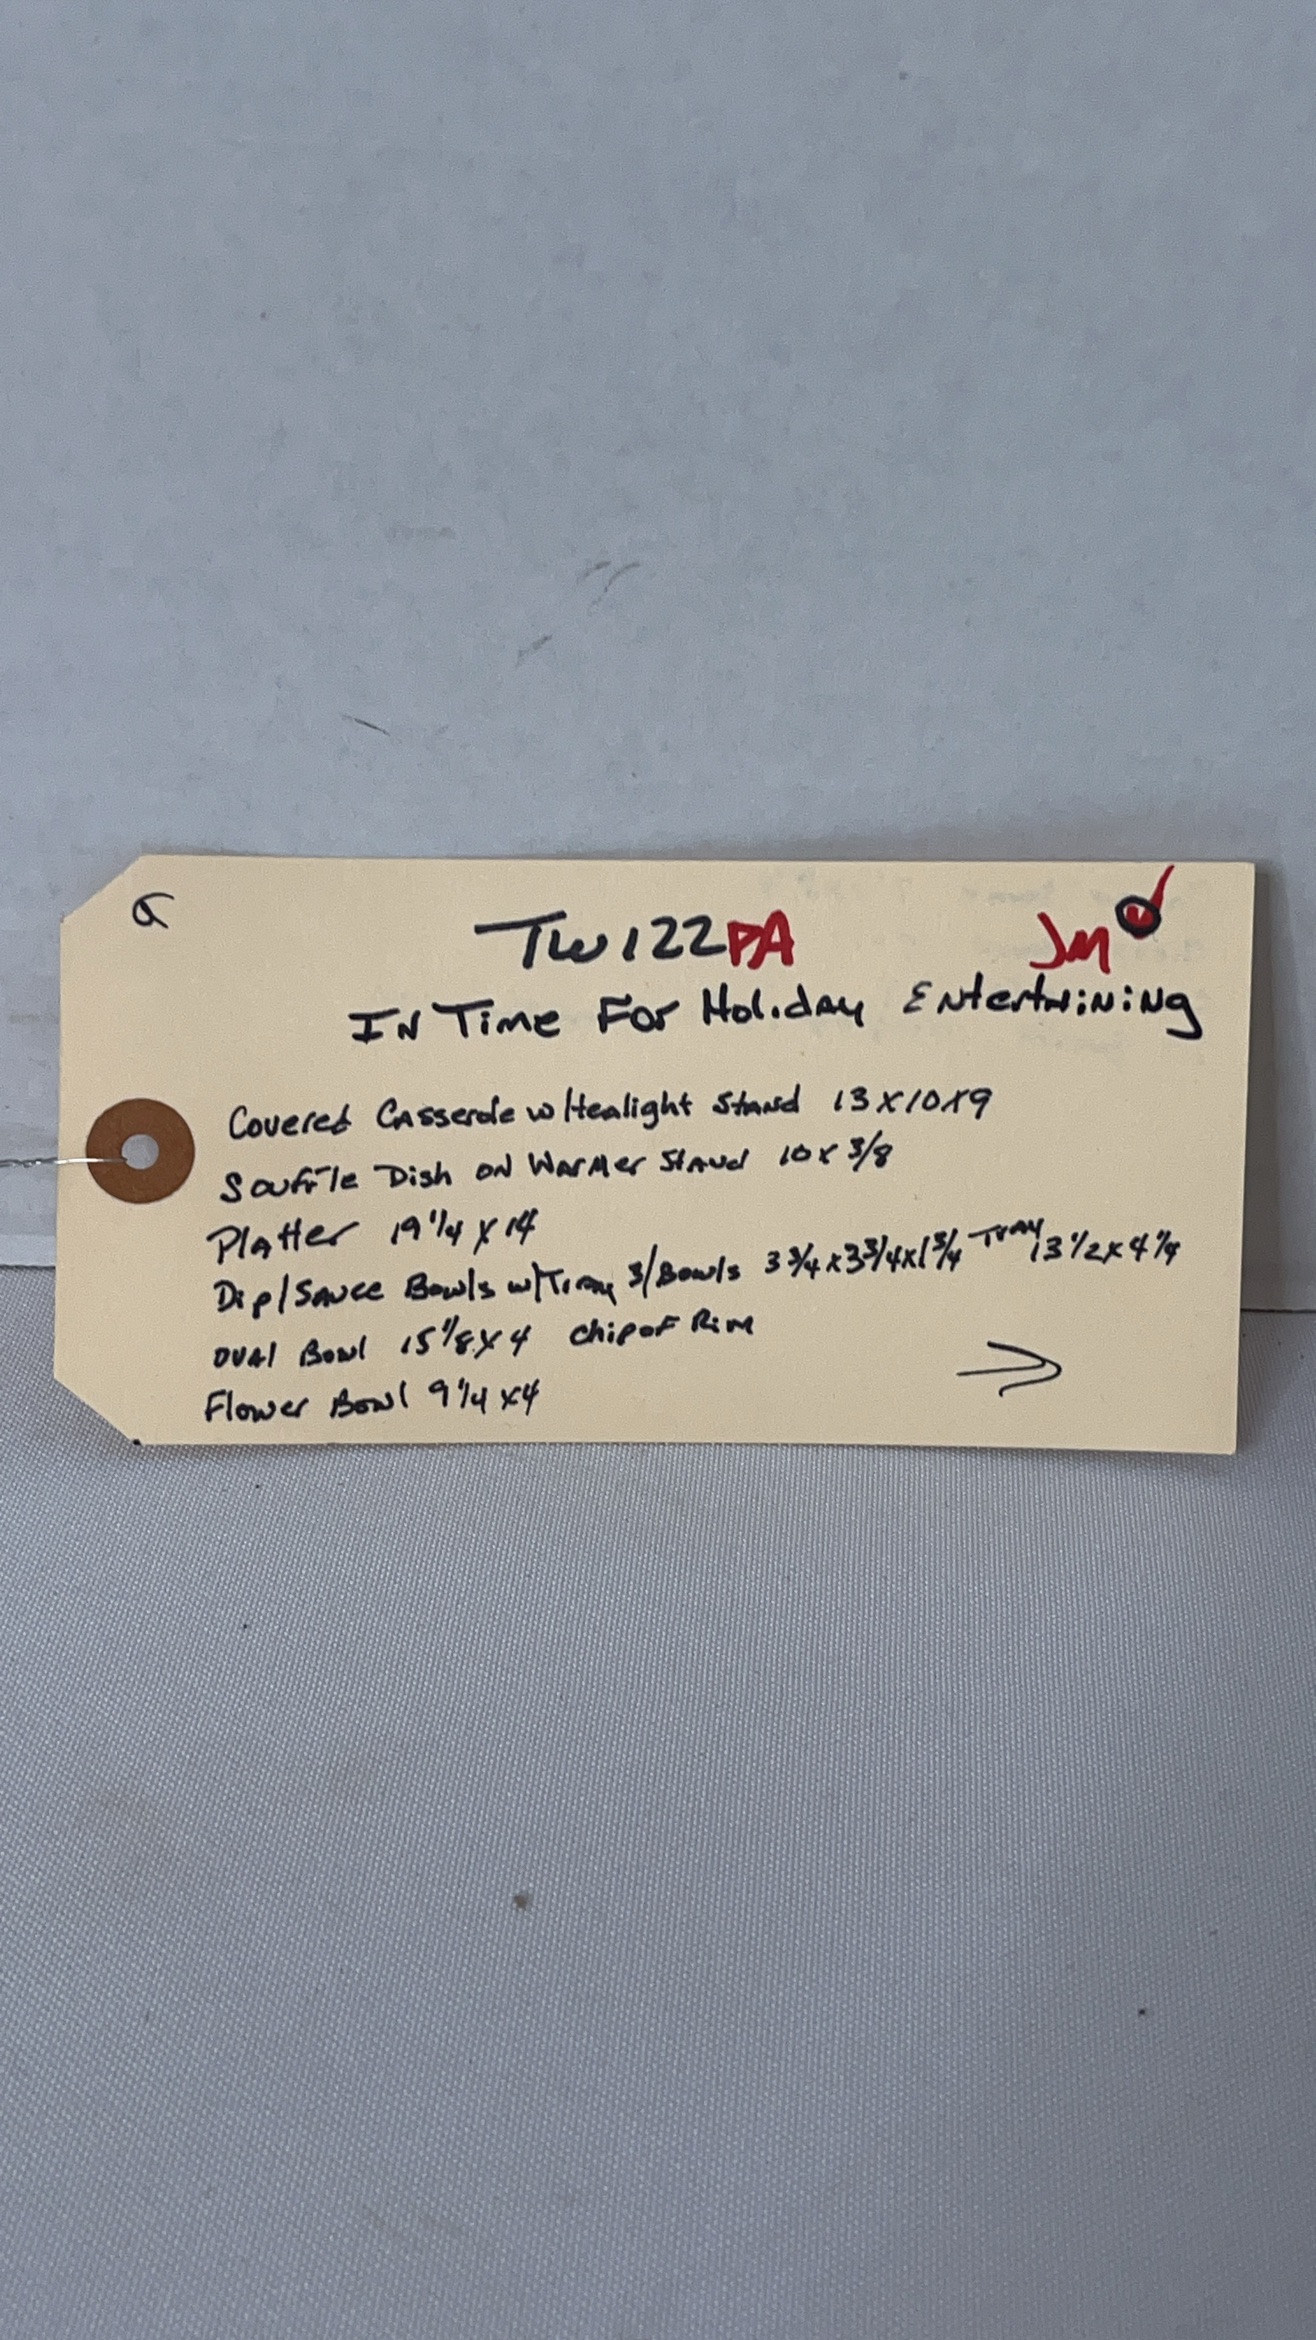 TW122PA JM
In Time For Holiday Entertaining
Covered Casserole w/tealight Stand 13x10x9
Souffle Dish on Warmer Stand 10x3/8
Platter 19 1/4 x 14
Dip/Sauce Bowls w/Tray 3/Bowls 3 3/4x3 3/4x1 3/4 Tray 13 1/2x4 1/4
Oval Bowl 15 1/8x4 Chip of Rim
Flower Bowl 9 1/4 x4